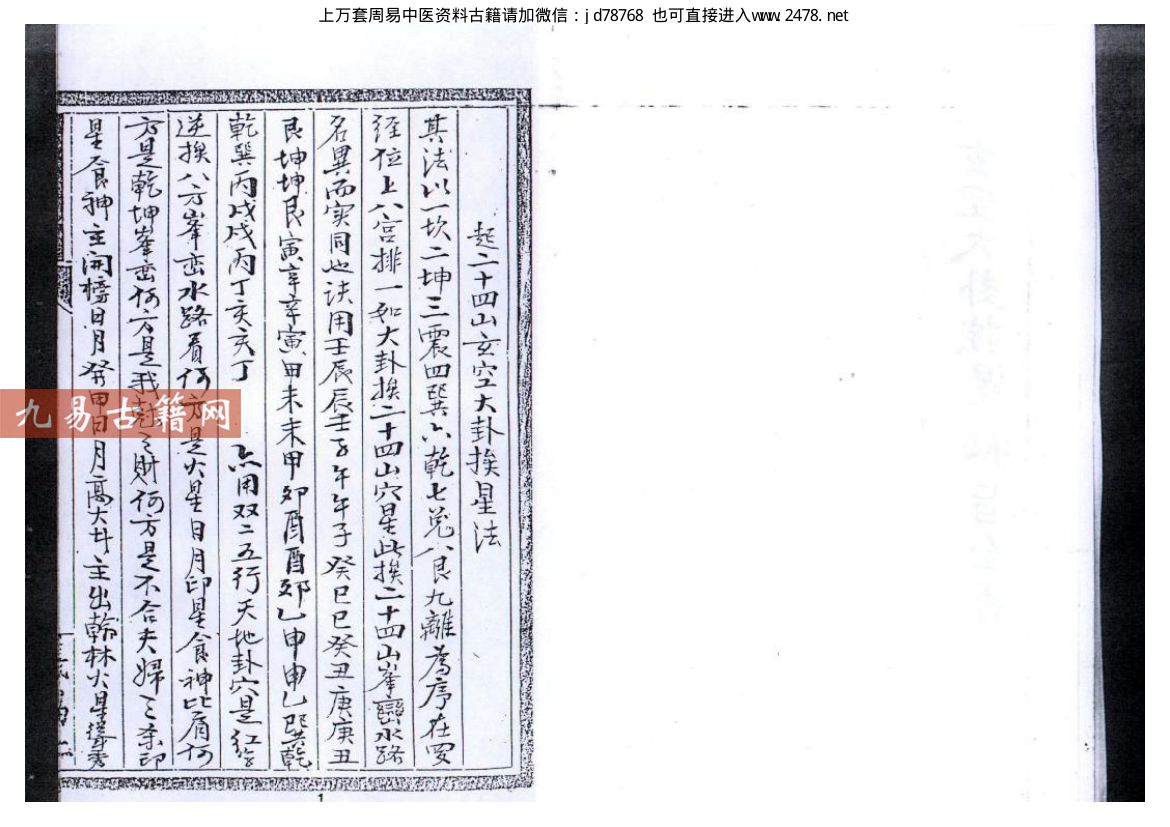 上万套周易中医资料古籍请加微信：jd78768 也可直接进入www.2478.net
起二十四山玄空大卦挨星法
其法以一坎二坤三震四巽六乾七兑八艮九離為序在
経位上八宫排一如大卦挨二十四山穴星此挨二十四山峯巒水路
名異而实同也诀用壬辰辰壬子午午子癸巳巳癸丑庚庚丑
艮坤坤艮寅辛辛寅甲未未甲卯酉酉卯乙申申乙巽乾
乾巽丙戌戌丙丁亥亥丁 点用双二五行天地卦穴是红
逆挨八方峯峦水路看何方是火星日月印星食神比肩何
方是乾坤峯峦何方是我之財何方是不合夫婦三 印
星食神主開榜日月癸甲日月高大斗主出翰林火星 秀
九易古籍网
1